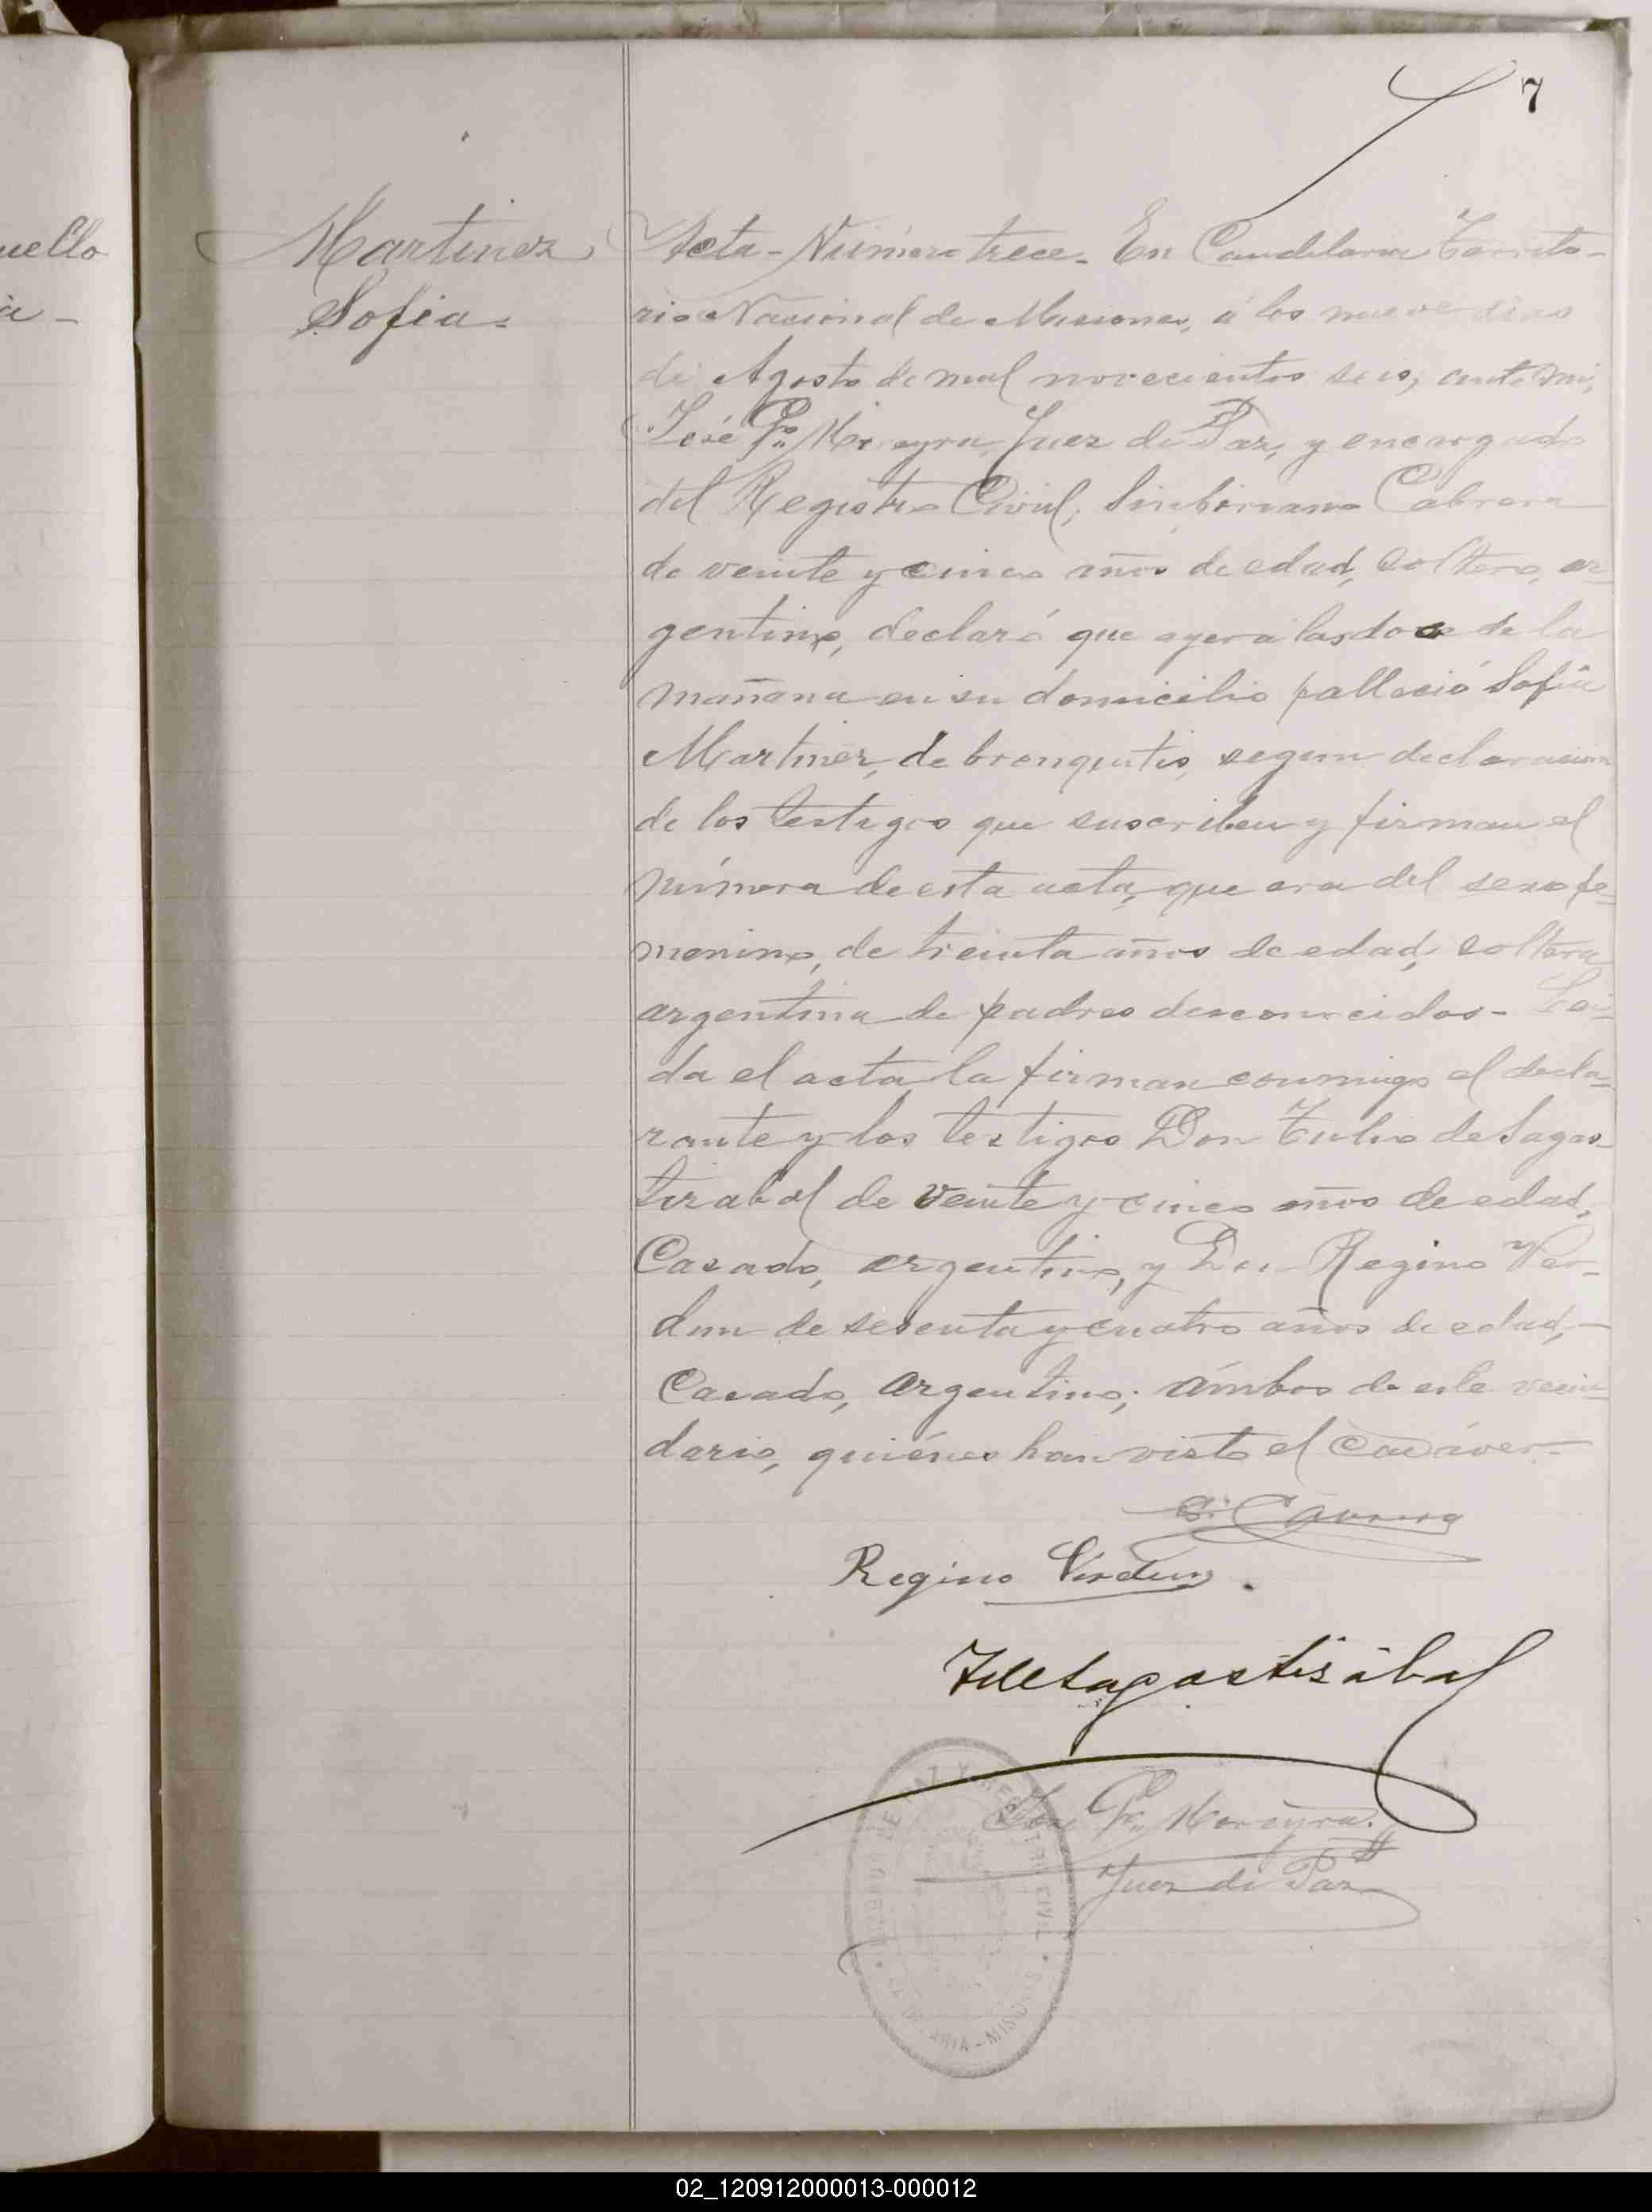 7
uello
a -
Martinez
Sofia.
Acta - Número trece. En Candelaria Territo-
rio Nacional de Misiones, á los nueve dias
de Agosto de mil novecientos seis, ante mi,
José Fco. Moreyra, Juez de Paz, y encargado
del Registro Civil, Sinforiano Cabrera
de veinte y cinco años de edad, soltero, ar-
gentino, declaró que ayer á las doce de la
mañana en su domicilio falleció Sofia
Martinez, de bronquitis, segun declaracion
de los testigos que suscriben y firman el
número de esta acta, que era del sexo fe-
menino, de treinta años de edad, soltera
argentina de padres desconocidos - Lei-
da el acta la firman conmigo el decla-
rante y los testigos Don Tulio de Sagas-
tizabal de veinte y cinco años de edad,
Casado, argentino, y Don Regino Ver-
dun de sesenta y cuatro años de edad, -
Casado, argentino; ámbos de este vecin-
dario, quiénes han visto el cadáver -
S. Cabrera
Regino Verdun.
TdeSagastizábal
José Fco. Moreyra.
Juez de Paz
JUZGADO DE PAZ Y REGISTRO CIVIL
CANDELARIA - MISIONES
02_120912000013-000012